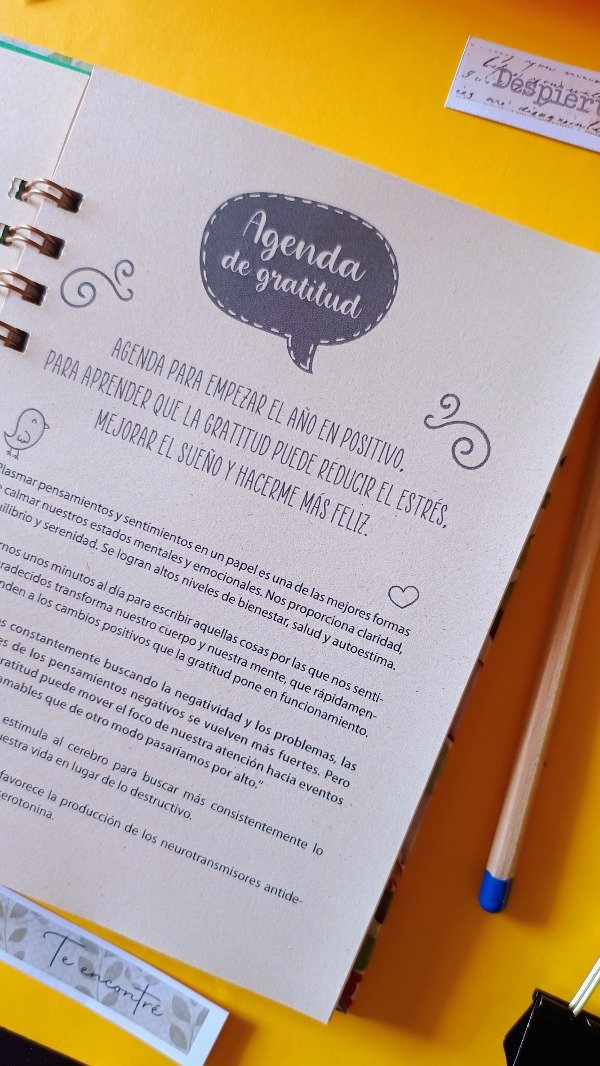 Despiert
Agenda
de gratitud
AGENDA PARA EMPEZAR EL AÑO EN POSITIVO.
PARA APRENDER QUE LA GRATITUD PUEDE REDUCIR EL ESTRÉS,
MEJORAR EL SUEÑO Y HACERME MÁS FELIZ.
Plasmar pensamientos y sentimientos en un papel es una de las mejores formas
e calmar nuestros estados mentales y emocionales. Nos proporciona claridad,
uilibrio y serenidad. Se logran altos niveles de bienestar, salud y autoestima.
rnos unos minutos al día para escribir aquellas cosas por las que nos senti-
radecidos transforma nuestro cuerpo y nuestra mente, que rápidamen-
nden a los cambios positivos que la gratitud pone en funcionamiento.
s constantemente buscando la negatividad y los problemas, las
es de los pensamientos negativos se vuelven más fuertes. Pero
ratitud puede mover el foco de nuestra atención hacia eventos
amables que de otro modo pasaríamos por alto."
estimula al cerebro para buscar más consistentemente lo
uestra vida en lugar de lo destructivo.
favorece la producción de los neurotransmisores antide-
serotonina.
Te encontré